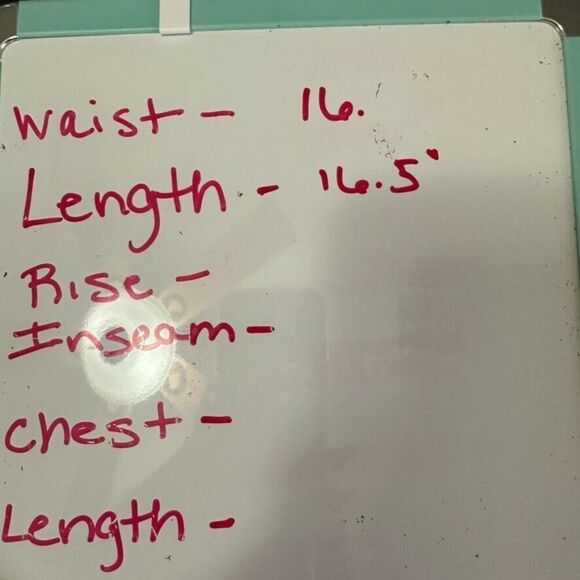 Waist - 16.
Length - 16.5"
Rise -
Inseam -
Chest -
Length -